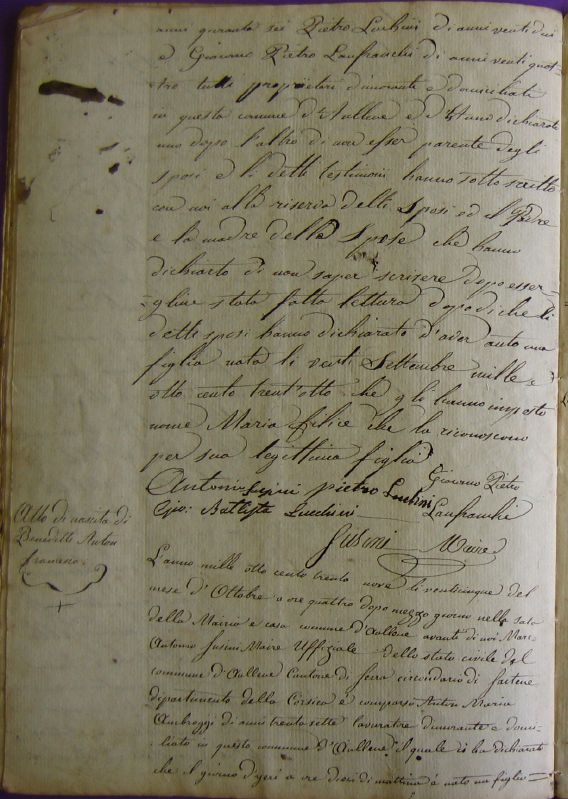 anni quaranta sei Pietro Luchini di anni venti due
e Giacomo Pietro Lanfranchi di anni venti quat-
tro tutti proprietari dimorante e domiciliati
in questa comune d'Aullene e d'Hanno dichiarato
uno dopo l'altro di non esser parente degli
sposi e li detti testimoni hanno sotto scritto
con noi alla riserva delli Sposi ed il Padre
e la madre della Spose che hanno
dichiarto di non saper scrivere dopo esser
-gline stata fatta lettura dopo di che li
detti sposi hanno dichiarato d'aver auto una
figlia nata li venti Settembre mille e
otto cento trent'otto che gle hanno imposto
nome Maria felice che la riconoscono
per sua legittima figlia
Antoni Susini pietro Luchini Giacomo Pietro
Gio: Battista Lucchini Lanfranchi
Susini Maire
Atto di nascita di
Benedetto Anton
francesco
L'anno mille otto cento trenta nove li venticinque del
mese d'Ottobre a ore quattro dopo mezzo giorno nella sala
della Mairia e casa comune d'Aullene avante di noi Marc
Antonio Susini Maire Uffiziale dello stato civile del
commune d'Aullene Cantone di Serra circondario di Sartene
dipartimento della Corsica è comparso Anton Maria
Ambroggi di anni trenta sette lavoratre dimorante e domi-
-liato in questo commune d'Aullene il quale ci ha dichiarato
che il giorno d'yeri a ore dieci di mattina è nato un figlio